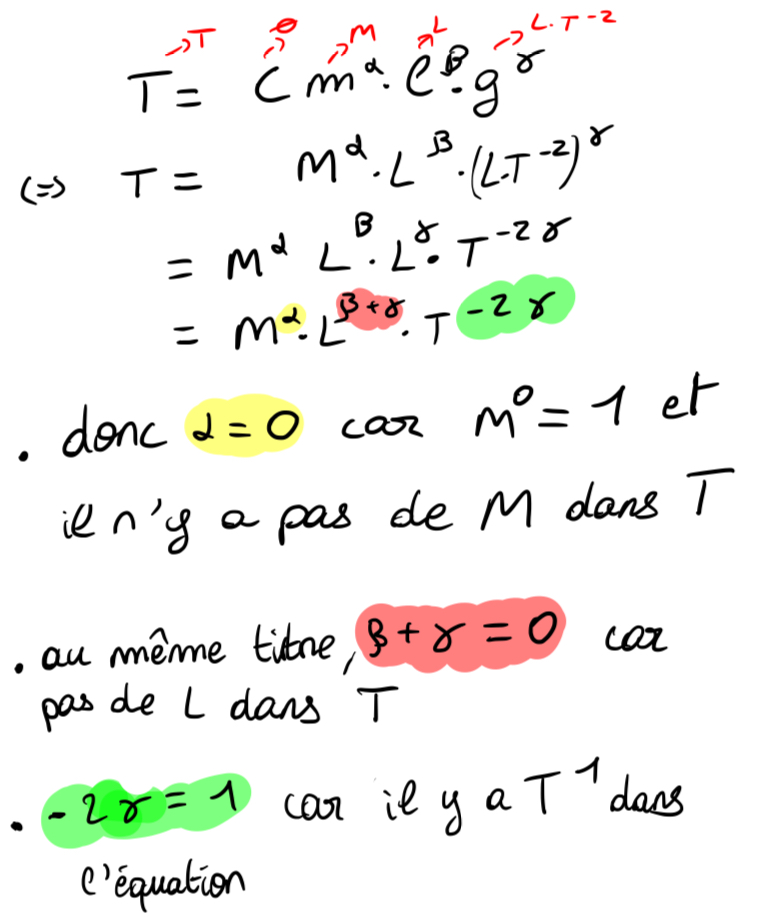 →T →θ →M →L →L.T-2
T = C m^α . l^β . g^γ
(=> T = M^α . L^β . (L.T^-2)^γ
= M^α L^β . L^γ . T^-2γ
= M^α . L^β+γ . T^-2γ
. donc α = 0 car M^0 = 1 et
il n'y a pas de M dans T
. au même titre, β + γ = 0 car
pas de L dans T
. -2γ = 1 car il y a T^1 dans
l'équation